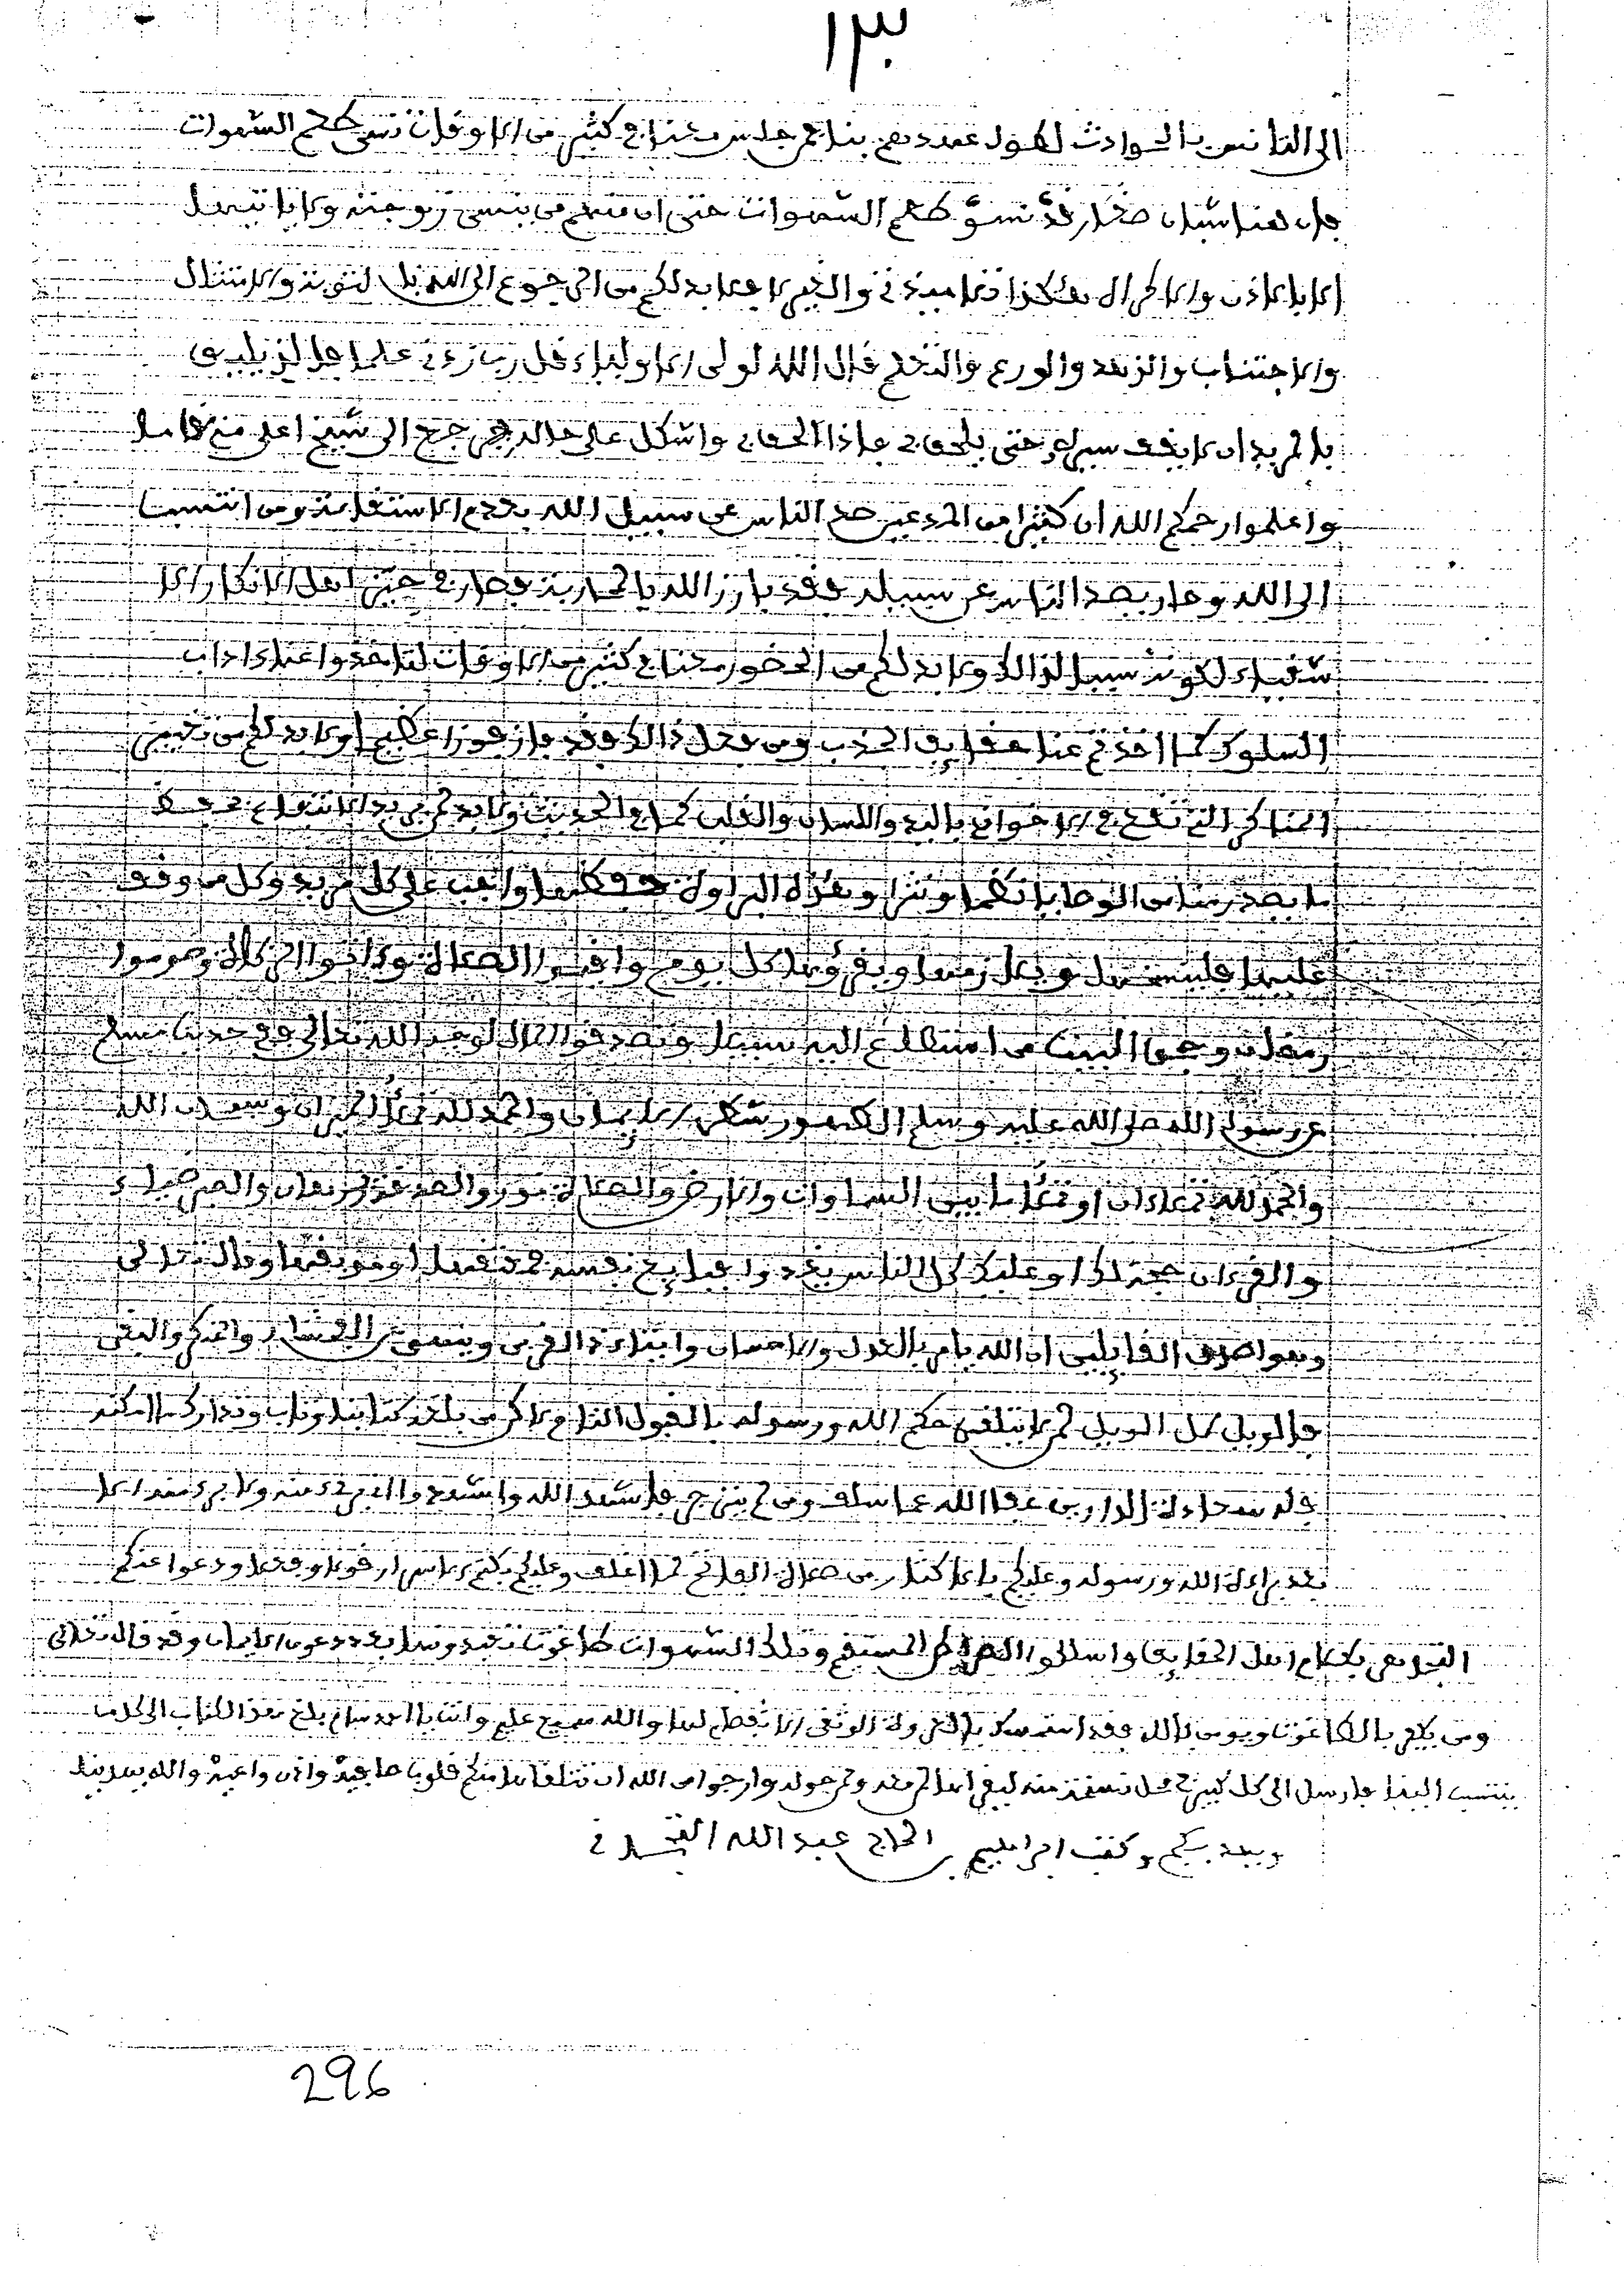 ١٣
الى التانس بالحوادث لطول عهدهم بنا فمن جلس معنا في كثير من الاوقات نسي طعم الشهوات
فان هنا شبان صغار قد نسوا طعم الشهوات حتى ان منهم من ينسى زوجته ولا ياتيها
الا بالاذن والاكراه هكذا تلاميذتي والغير لا فلا بد لكم من الرجوع الى الله بالتوبة والامتثال
والاجتناب والزهد والورع والتعلم قال الله لولي الاولياء قل رب زدني علما فالذي يليق
بالمريد ان لا يقف سيره حتى يلحقني فاذا الحقني واشكل على حاله رجع الى شيخ اعلى مني كاملا
واعلموا رحمكم الله ان كثيرا من المدعين صد الناس عن سبيل الله بعدم الاستقامة ومن انتسب
الى الله وصار يصد الناس عن سبيله فقد بارز الله بالمحاربة فصار في حيز اهل الانكار الا
شقياء لكونه سببا لذالك ولا بد لكم من الحضور معنا في كثير من الاوقات لتاخذوا عنا اداب
السلوك كما اخذتم عنا حقايق الجذب ومن فعل ذالك فقد فاز فوزا عظيما ولا بد لكم من تغيير
المناكر التي تقع في الاخوان باليد واللسان والقلب كما في الحديث ولا بد لمن يريد الانتفاع من حفظ
ما يصدر منا من الوصايا نظما ونثرا وهذه البراوة حفظها واجب على كل مريد وكل من وقف
عليها فلينسخها ويلازمها ويقرؤها كل يوم واقيموا الصلاة وءاتوا الزكاة وصوموا
رمضان وحجوا البيت من استطاع اليه سبيلا وتصدقوا المال لوجه الله تعالى ففي حديث مسلم
عن رسول الله صلى الله عليه وسلم الطهور شطر الايمان والحمد لله تملأ الميزان وسبحان الله
والحمد لله تملاءان او تملأ ما بين السماوات والارض والصلاة نور والصدقة برهان والصبر ضياء
والقرءان حجة لك او عليك كل الناس يغدوا فبايع نفسه فمعتقها او موبقها وقال تعالى
وهو اصدق القايلين ان الله يامر بالعدل والاحسان وايتاءى ذالقربى وينهى عن الفحشاء والمنكر والبغي
فالويل كل الويل لمن لا يتلقى حكم الله ورسوله بالقبول التام لاكن من بلغه كتابنا وتاب وتدارك ما امكنه
فله سعادة الدارين عفا الله عما سلف ومن لم ينزجر فاشهد الله واشهدوا اني بريء منه ولا بريء منه الا
بعد براءة الله ورسوله وعليكم بالاكثار من صلاة الفاتح لما اغلق وعليكم بكتم الاسرار قولا وفعلا ودعوا عنكم
التبرهن بكلام اهل الحقايق واسلكوا الصراط المستقيم وتلك الشهوات طاغوت تعبدونها بعد دعوى الايمان وقد قال تعالى
ومن يكفر بالطاغوت ويومن بالله فقد استمسك بالعروة الوثقى لا انفصام لها والله سميع عليم وانت يا احمد سام بلغ هذا الكتاب الى كل من
ينتسب الينا فارسل الى كل كبير محل نسخة منه ليقراها لمن معه ولمن حوله وارجوا من الله ان تتلقاها منكم قلوبا صافية واذن واعية والله يهدينا
ويهديكم وكتب ابراهيم بن الحاج عبد الله التجاني
296